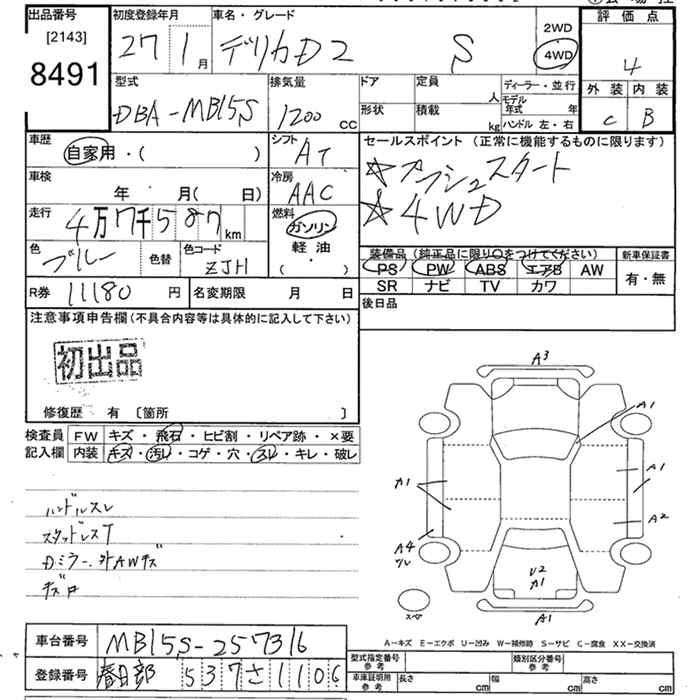 出品番号
[2143]
8491
初度登録年月
27 1 月
車名・グレード
デリカD2 S
2WD
4WD
評価点
4
外装 内装
C B
型式
DBA-MB15S
排気量
1200 cc
ドア
形状
定員 人
積載 kg
ディーラー・並行
モデル年式 年
ハンドル 左・右
車歴
自家用・( )
シフト
AT
車検
年 月( 日)
冷房
AAC
走行
4万7千587 km
燃料
ガソリン
軽油
・( )
色
ブルー
色替
色コード
ZJH
セールスポイント(正常に機能するものに限ります)
☆プッシュスタート
☆4WD
装備品(純正品に限り○をつけてください)
PS PW ABS エアB AW
SR ナビ TV カワ
新車保証書
有・無
後日品
R券 11180 円
名変期限 月 日
注意事項申告欄(不具合内容等は具体的に記入して下さい)
初出品
修復歴 有 〔箇所 〕
検査員記入欄
FW キズ・飛石・ヒビ割・リペア跡・×要
内装 キズ・汚レ・コゲ・穴・スレ・キレ・破レ
ハンドルスレ
スタッドレスT
Dミラー、外AWキズ
A3
A1
A1
A1
A2
A4
U2
A1
A1
スペア
A-キズ E-エクボ U-凹み W-補修跡 S-サビ C-腐食 XX-交換済
車台番号 MB15S-257316
登録番号 春日部 537さ1106
型式指定番号 参考
類別区分番号 参考
車庫証明用 参考 長さ cm 幅 cm 高さ cm